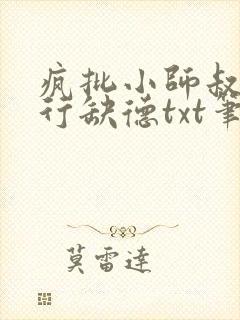 疯批小師叔
行缺德txt筆
莫雷達